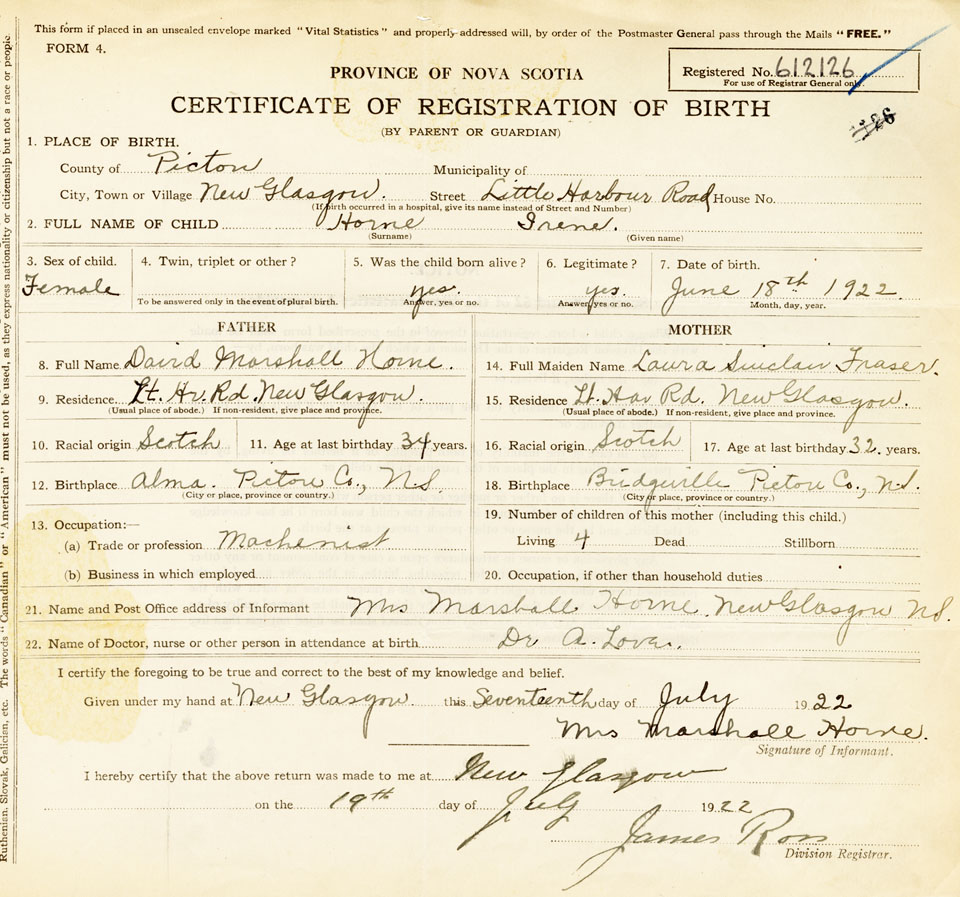 This form if placed in an unsealed envelope marked "Vital Statistics" and properly addressed will, by order of the Postmaster General pass through the Mails "FREE."
FORM 4.
Registered No. 612126
For use of Registrar General only.
PROVINCE OF NOVA SCOTIA
CERTIFICATE OF REGISTRATION OF BIRTH
(BY PARENT OR GUARDIAN)
1. PLACE OF BIRTH.
County of Pictou Municipality of
City, Town or Village New Glasgow. Street Little Harbour Road House No.
(If birth occurred in a hospital, give its name instead of Street and Number)
2. FULL NAME OF CHILD Horne Irene.
(Surname) (Given name)
3. Sex of child. 4. Twin, triplet or other? 5. Was the child born alive? 6. Legitimate? 7. Date of birth.
Female yes. yes. June 18th 1922.
To be answered only in the event of plural birth. Answer, yes or no. Answer, yes or no. Month, day, year.
FATHER MOTHER
8. Full Name David Marshall Horne. 14. Full Maiden Name Laura Sinclair Fraser.
9. Residence Lt. Hr. Rd. New Glasgow. 15. Residence Lt. Har Rd. New Glasgow.
(Usual place of abode.) If non-resident, give place and province. (Usual place of abode.) If non-resident, give place and province.
10. Racial origin Scotch 11. Age at last birthday 34 years. 16. Racial origin Scotch 17. Age at last birthday 32. years.
12. Birthplace Alma. Pictou Co., N.S. 18. Birthplace Bridgeville Pictou Co., N.S.
(City or place, province or country.) (City or place, province or country.)
13. Occupation:— 19. Number of children of this mother (including this child.)
(a) Trade or profession Machenist Living 4 Dead Stillborn
(b) Business in which employed 20. Occupation, if other than household duties
21. Name and Post Office address of Informant Mrs Marshall Horne New Glasgow N.S.
22. Name of Doctor, nurse or other person in attendance at birth Dr A.
I certify the foregoing to be true and correct to the best of my knowledge and belief.
Given under my hand at New Glasgow this Seventeenth day of July 1922
Mrs Marshall Horne.
Signature of Informant.
I hereby certify that the above return was made to me at New Glasgow
on the 19th day of July 1922
James Ross
Division Registrar.
Ruthenian, Slovak, Galician, etc. The words "Canadian" or "American" must not be used, as they express nationality or citizenship but not a race or people